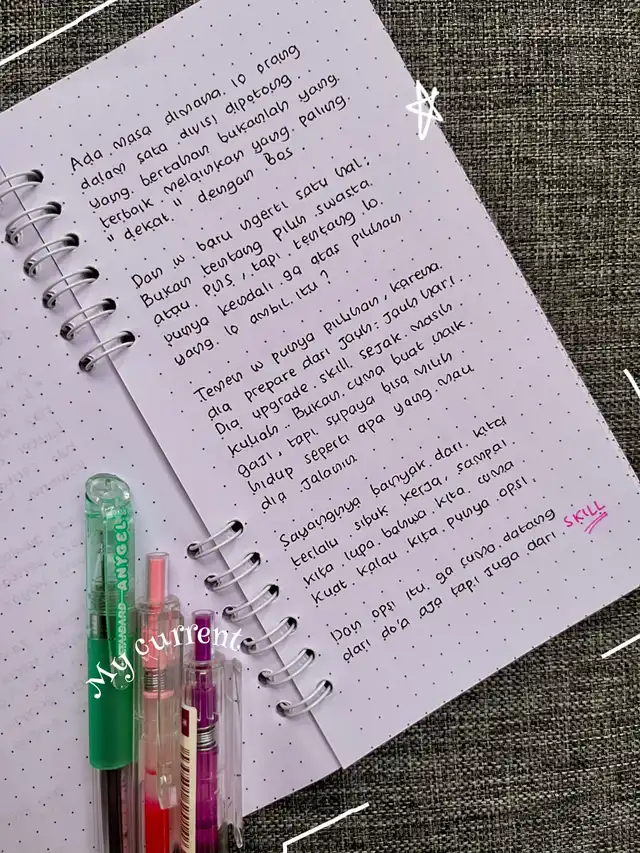 Ada masa dimana 10 orang
dalam satu divisi dipotong
yang bertahan bukanlah yang.
terbaik melainkan yang paling.
"dekat" dengan Bos
Dan w baru ngerti satu hal;
Bukan tentang Pilih swasta.
atau PNS, tapi tentang lo.
punya kendali ga atas pilihan
yang lo ambil itu?
Temen w punya pilihan, karena
dia prepare dari jauh: jauh hari.
Dia upgrade skill sejak masih
kuliah.. Bukan cuma buat naik.
gaji, tapi supaya bisa milih
hidup seperti apa yang mau
dia Jalanin
Sayangnya banyak dari kita
terlalu sibuk kerja, sampai.
kita lupa bahwa kita cuma
kuat kalau kita punya opsi.
Dan opsi itu ga cuma datang
dari do'a aja tapi juga dari SKILL
STANDARD ANYGEL
My current